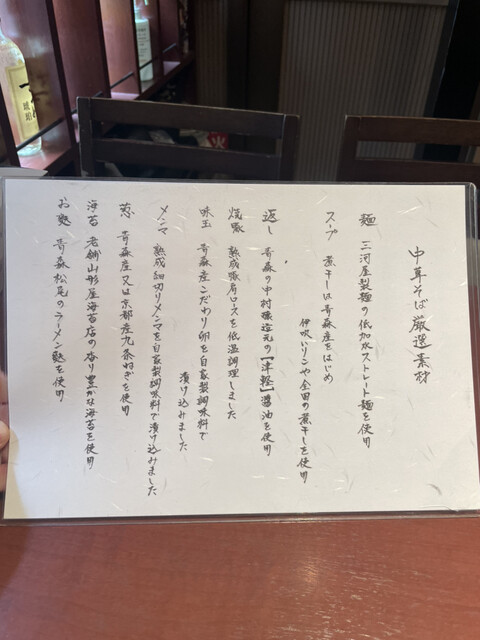 中華そば厳選素材
麺 三河屋製麺の低加水ストレート麺を使用
スープ 煮干しは青森産をはじめ
伊吹いりこや全国の煮干しを使用
返し 青森の中村醸造元の【津軽】醤油を使用
焼豚 熟成豚肩ロースを低温調理しました
味玉 青森産こだわり卵を自家製調味料で
漬け込みました
メンマ 熟成細切りメンマを自家製調味料で漬け込みました
葱 青森産又は京都産九条ねぎを使用
海苔 老舗山形屋海苔店の香り豊かな海苔を使用
お麩 青森松尾のラーメン麩を使用
琥珀